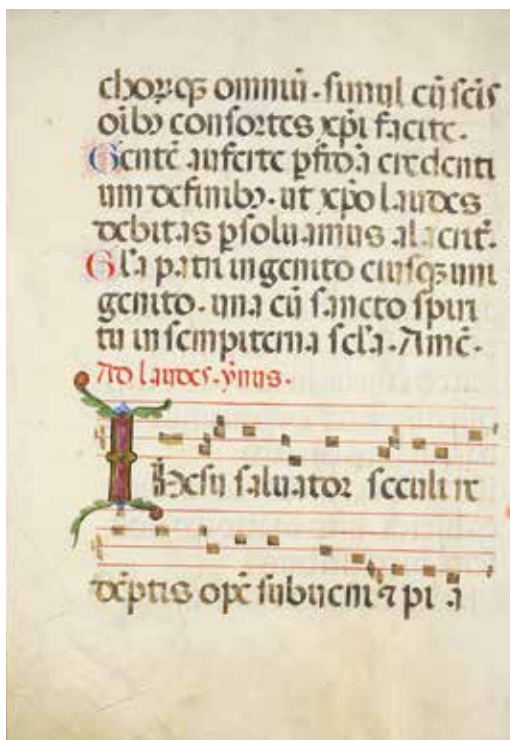 chorqꝫ omniū. simul cū scīs
oībꝫ consortes xp̄i facite.
Gentē auferte ꝑfidā credenti
um de finibꝫ. ut xp̄o laudes
debitas ꝑsoluamus alacrit̄.
Gl̄a patri ingenito eiusqꝫ uni
genito. una cū sancto spiri
tu in sempiterna scl̄a. Amē.
Ad laudes. ẏnus.
Ihesu saluator seculi re
dēptis opē subueni ⁊ pi a